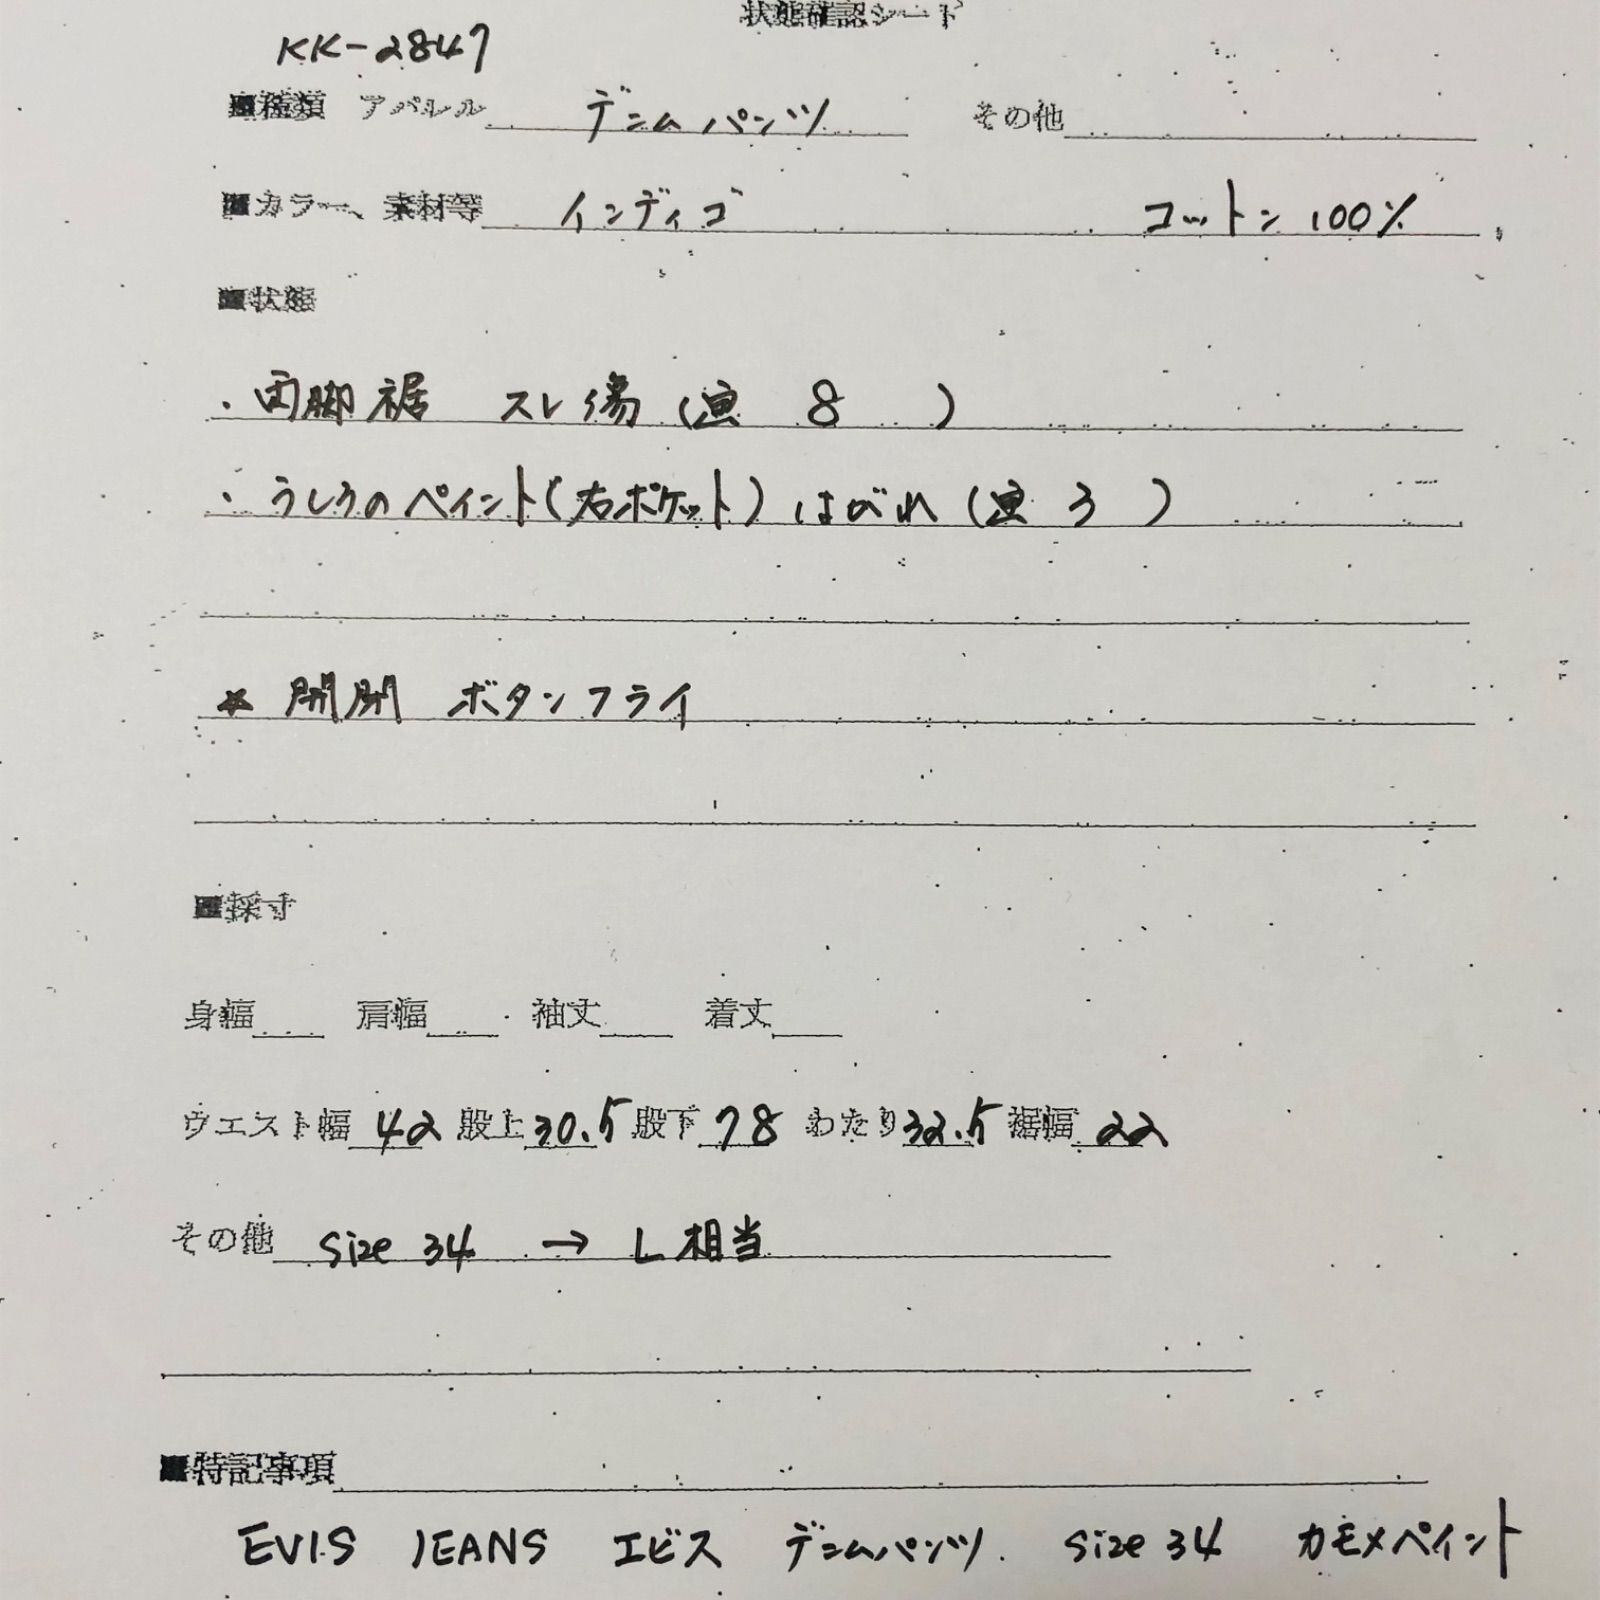 状態確認シート
KK-2847
■種類 アパレル デニムパンツ その他
■カラー、素材等 インディゴ コットン 100%
■状態
・両脚裾 スレ傷(画 8 )
・うしろのペイント(右ポケット)はがれ(画 3 )
☆ 開閉 ボタンフライ
■採寸
身幅 肩幅 袖丈 着丈
ウエスト幅 42 股上 30.5 股下 78 わたり 32.5 裾幅 22
その他 size 34 → L相当
■特記事項
EVIS JEANS エビス デニムパンツ. size 34 カモメペイント